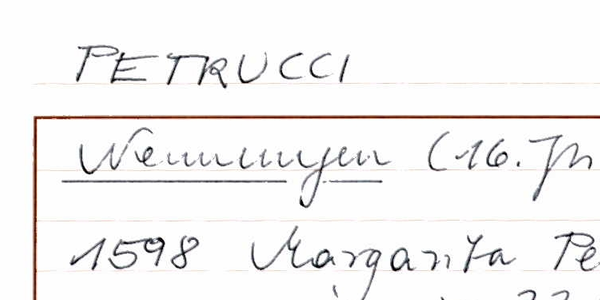 PETRUCCI
Nenningen (16. Jh
1598 Margarita Pe